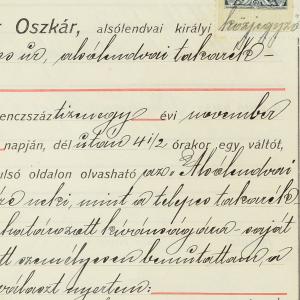 r Oszkár, alsólendvai királyi közjegyző
os úr, alsólendvai takarék-
enczszáz tizenegy évi november
napján, dél után 4 1/2 órakor egy váltót,
ulsó oldalon olvasható Alsólendvai
neki, mint a telepes takarék-
határozott kívánságára - saját
tt személyesen bemutattam, a
választ nyertem: